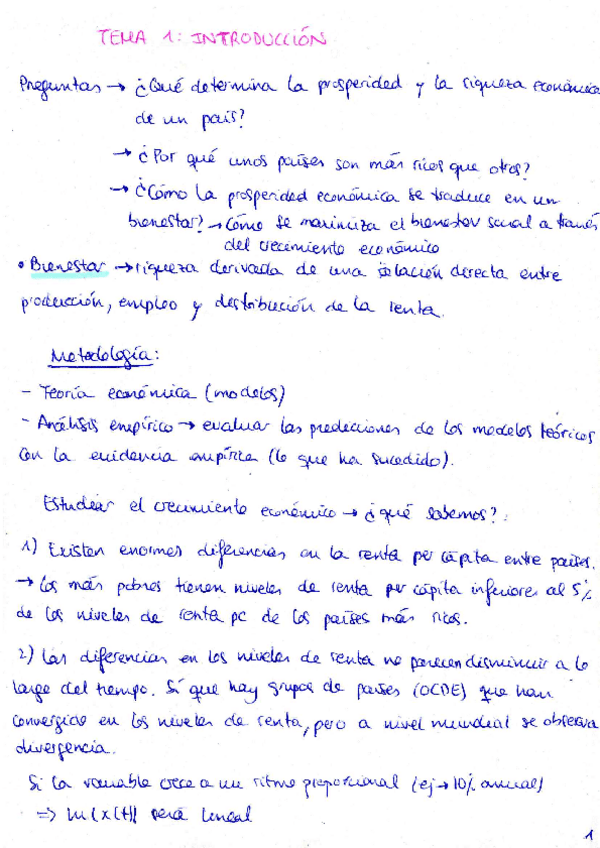 TEMA 1: INTRODUCCIÓN
Preguntas → ¿Qué determina la prosperidad y la riqueza económica
de un país?
→ ¿Por qué unos países son más ricos que otros?
→ ¿Cómo la prosperidad económica se traduce en un
bienestar? → Cómo se maximiza el bienestar social a través
del crecimiento económico
• Bienestar → riqueza derivada de una relación directa entre
producción, empleo y distribución de la renta.
Metodología:
- Teoría económica (modelos)
- Análisis empírico → evaluar las predicciones de los modelos teóricos
con la evidencia empírica (lo que ha sucedido).
Estudiar el crecimiento económico → ¿qué sabemos?:
1) Existen enormes diferencias en la renta per cápita entre países.
→ Los más pobres tienen niveles de renta per cápita inferiores al 5%
de los niveles de renta pc de los países más ricos.
2) Las diferencias en los niveles de renta no parecen disminuir a lo
largo del tiempo. Sí que hay grupos de países (OCDE) que han
convergido en los niveles de renta, pero a nivel mundial se observa
divergencia.
Si la variable crece a un ritmo proporcional (ej → 10% anual)
=> ln(x(t)) será lineal
1